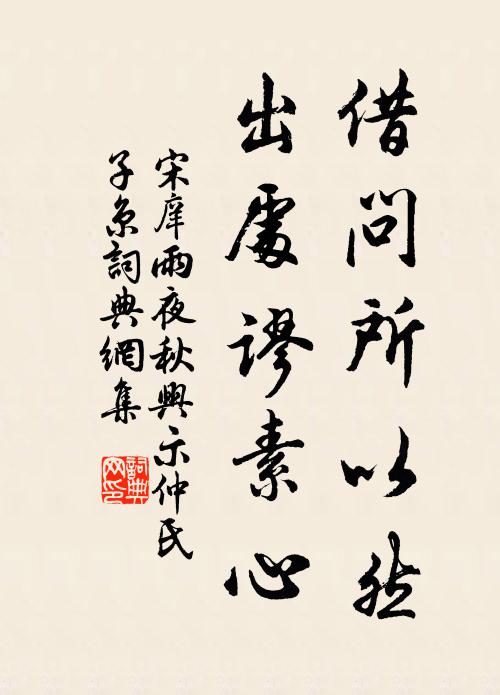 借问所以然
出處谬素心
宋庠雨夜秋興示仲氏
子京詞典網集
詞典网印